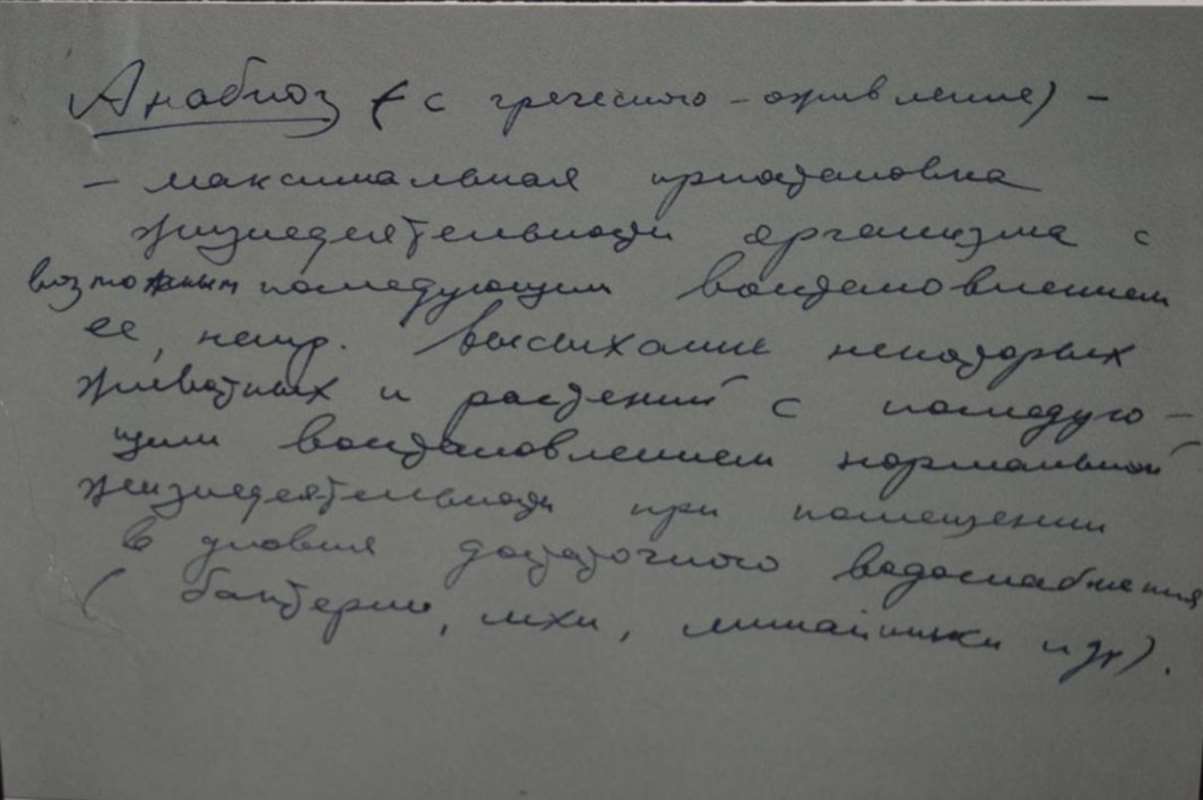 Анабиоз (с греческого - оживление) -
- максимальная приостановка
жизнедеятельности организма с
возможным последующим восстановлением
ее, напр. высыхание некоторых
животных и растений с последую-
щим восстановлением нормальной
жизнедеятельности при помещении
в условия достаточного водоснабжения
(бактерии, мхи, лишайники и др).